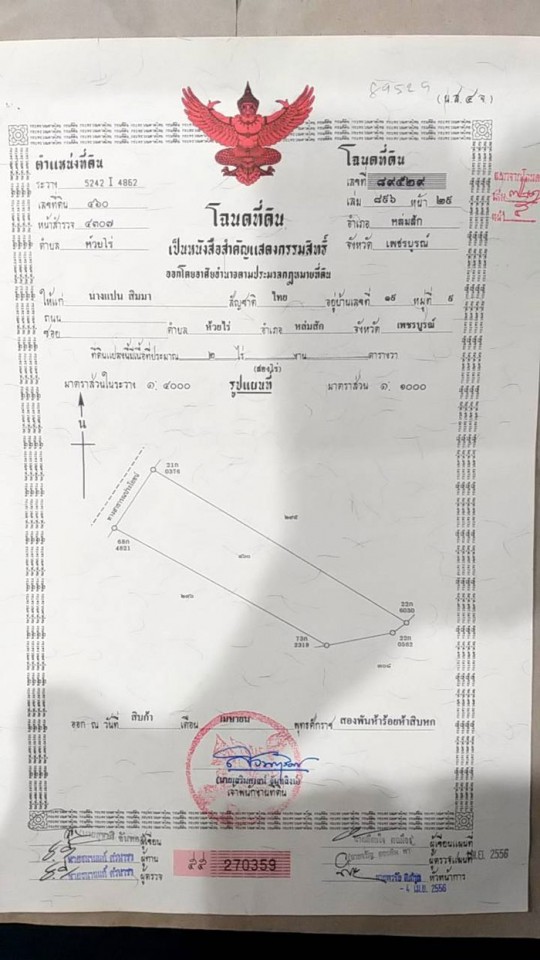 89529
(น.ส. ๔ จ.)
ตำแหน่งที่ดิน
ระวาง 5242 I 4862
เลขที่ดิน ๔๖๐
หน้าสำรวจ ๔๓๐๗
ตำบล ห้วยไร่
โฉนดที่ดิน
เลขที่ ๘๙๕๒๙
เล่ม ๘๙๖ หน้า ๒๙
อำเภอ หล่มสัก
จังหวัด เพชรบูรณ์
โฉนดที่ดิน
เป็นหนังสือสำคัญแสดงกรรมสิทธิ์
ออกโดยอาศัยอำนาจตามประมวลกฎหมายที่ดิน
ให้แก่ นางแปน สิมมา สัญชาติ ไทย อยู่บ้านเลขที่ ๑๙ หมู่ที่ ๙
ถนน
ซอย ตำบล ห้วยไร่ อำเภอ หล่มสัก จังหวัด เพชรบูรณ์
ที่ดินแปลงนี้มีเนื้อที่ประมาณ ๒ ไร่ งาน ตารางวา
(สองไร่)
มาตราส่วนในระวาง ๑: ๔๐๐๐ รูปแผนที่ มาตราส่วน ๑: ๑๐๐๐
น
21ก
0376
ทางสาธารณประโยชน์
68ก
4821
๒๙๕
๔๖๐
๒๙๖
22ก
22ก
73ก
2319
๓๐๘
ออก ณ วันที่ สิบเก้า เดือน เมษายน พุทธศักราช สองพันห้าร้อยห้าสิบหก
เจ้าพนักงานที่ดิน
ผู้เขียน
ผู้ทาน
ผู้ตรวจ
270359
ผู้เขียนแผนที่
ผู้ตรวจแผนที่
หัวหน้าการ
2556
- 4 เม.ย. 2556